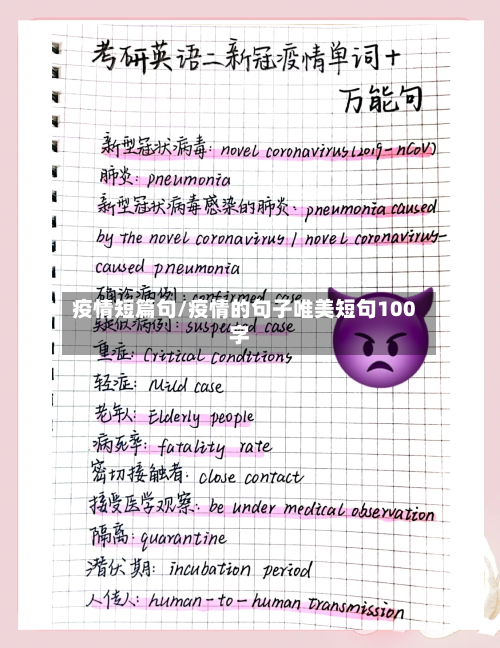 考研英语二新冠疫情单词+
万能句
新型冠状病毒: novel coronavirus(2019-nCoV)
肺炎: pneumonia
新型冠状病毒感染的肺炎: pneumonia caused
by the novel coronavirus / novel coronavirus-
caused pneumonia
确诊病例: confirmed case
疫情短篇句/疫情的句子唯美短句100
字
疑似病例: suspected case
重症: Critical conditions
轻症: Mild case
老年人: Elderly people
病死率: fatality rate
密切接触者: close contact
接受医学观察: be under medical observation
隔离: quarantine
潜伏期: incubation period
人传人: human-to-human transmission